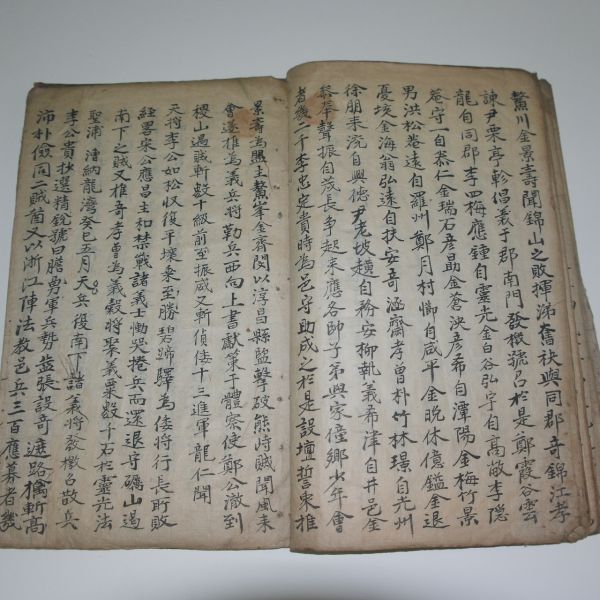 鰲川金景壽聞錦山之敗揮涕奮袂與同郡奇錦江孝
諫尹栗亭軫倡義于郡南門發檄號召於是鄭霞谷雲
龍自同郡李四梅應鍾自靈光金白谷弘宇自高敞李隱
菴守一自泰仁金瑞石彦勗金蒼泱彦希自潭陽金梅竹景
男洪松菴遠自羅州鄭月村惂自咸平金晩休億鎰金退
憂垓金海翁弘遠自扶安奇涵齋孝曾朴竹林璟自光州
徐朋來浣自興德尹老坡趪自務安柳執義希津自井邑金
黎擧聲振自茂長爭起來應各帥子弟與家僮鄉少年會
者幾二千李忠定貴時為邑守助成之於是設壇誓衆推
景壽為盟主鰲峯金齊閔以淳昌縣監擊破熊峙賊聞風來
會遂推為義兵將勒兵西向上書獻策于體察使鄭公澈到
稷山遇賊斬馘十級前至振威又斬倭十三進軍龍仁聞
天將李公如松收復平壤乘勝碧蹄驛為倭將行長所敗
經畧宋公應昌主和禁戰諸義士慟哭捲兵而還退守礪山遏
南下之賊又推奇孝曾為義穀將聚義粟數千石於靈光法
聖浦漕納龍灣癸巳五月天兵後南下諸義將發檄召故兵
李公貴抄選精銳號曰膽勇軍兵勢益張設奇遮路擒斬高
沛朴儉同二賊酋又以浙江陣法敎邑兵三百應募者幾